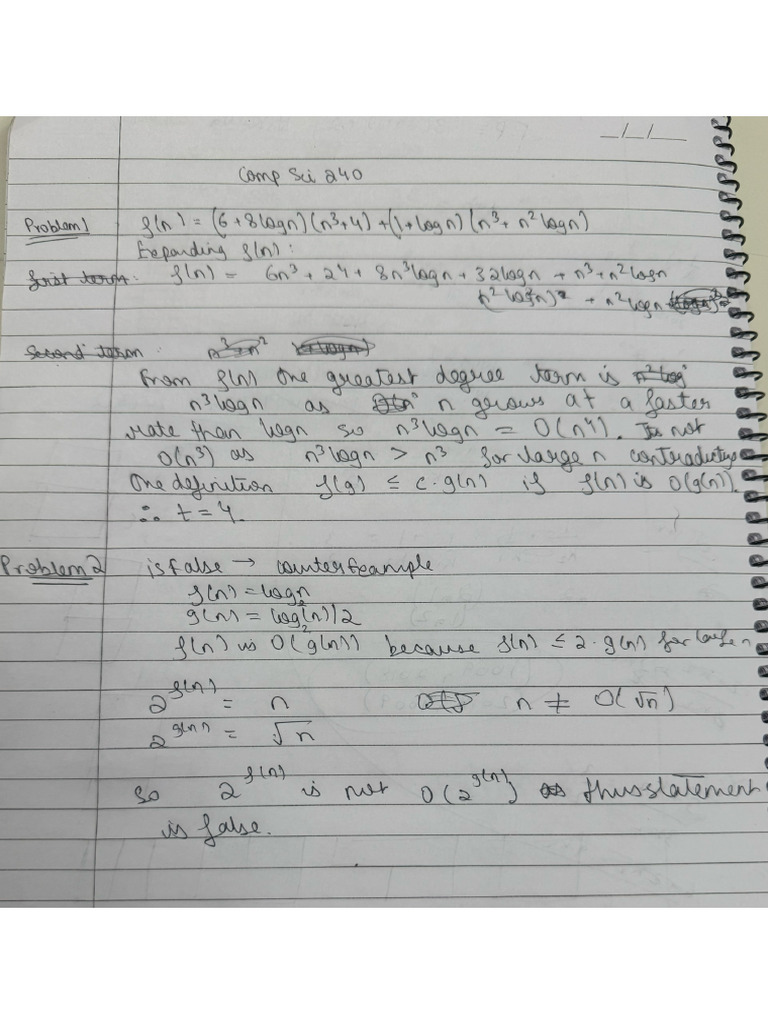 _/_/_
Comp Sci 240
Problem 1 f(n) = (6+8logn)(n³+4) + (1+logn)(n³+n²logn)
Expanding f(n):
first term: f(n) = 6n³ + 24 + 8n³logn + 32logn + n³ + n²logn
+ n²logn
Second term:
From f(n) the greatest degree term is
n³logn as n grows at a faster
rate than logn so n³logn = O(n⁴). Is not
O(n³) as n³logn > n³ for large n contradicting
the definition f(g) ≤ c·g(n) if f(n) is O(g(n)).
∴ t = 4.
Problem 2 is false → counterexample
f(n) = log₂n
g(n) = log₂(n)/2
f(n) is O(g(n)) because f(n) ≤ 2·g(n) for large n
2^f(n) = n n ≠ O(√n)
2^g(n) = √n
So 2^f(n) is not O(2^g(n)) thus statement
is false.